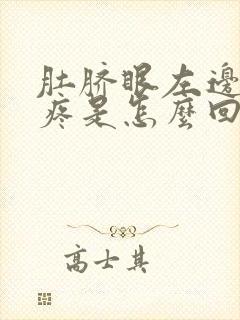 肚脐眼左邊
疼是怎麼回
高士其